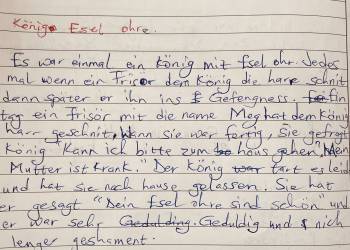 König Esel ohre.
Es war einmal ein König mit Esel ohr. Jedes
mal wenn ein Frisör dem König die hare schnit
dann später er ihn ins Gefengness. Ein
tag ein Frisör mit die name Meghat dem König
harr geschnit, Wann sie war fertig, Sie gefragt
König "Kann ich bitte zum haus gehen, Mein
Mutter ist Krank." Der König tat es leid
und hat sie nach hause gelassen. Sie hat
er gesagt "Dein Esel ohre sind schön" und
er war sehr Gedulding. Geduldig und nich
lenger geshamt.